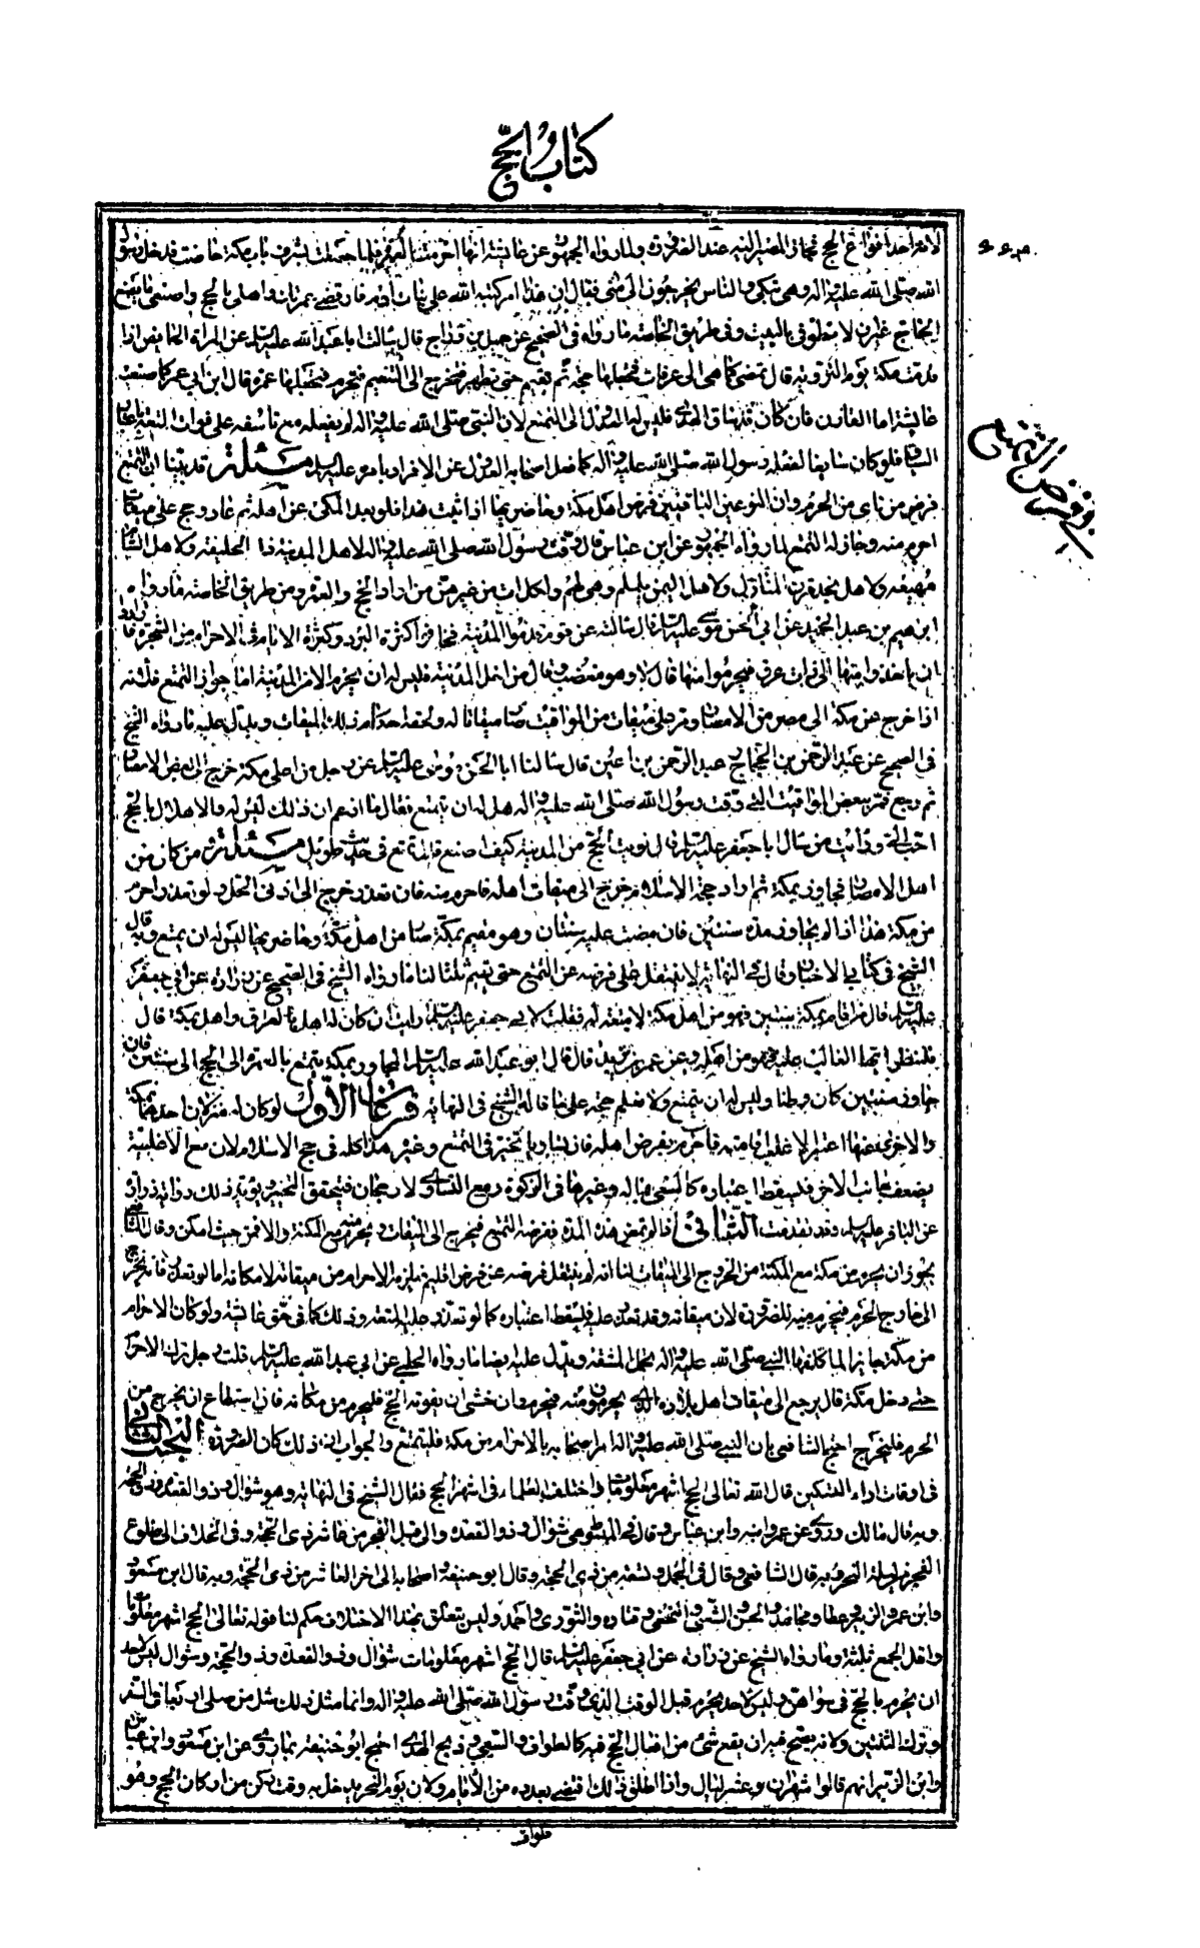 كتاب الحج
٦٦٣
في فرض التمتع
لانه احد انواع الحج فجاز المصير اليه عند الضرورة ولما رواه الجمهور عن عائشة انها احرمت بالعمرة فلما حصلت بشرف باب مكة حاضت فدخل رسول
الله صلى الله عليه واله وهي تبكي والناس يخرجون الى منى فقال ان هذا امر كتبه الله على بنات آدم فارفضي عمرتك واهلي بالحج واصنعي ما يصنع
الحاج غير ان لا تطوفي بالبيت وفي طريق الخاصة ما رواه في الصحيح عن جميل بن دراج قال سالت ابا عبد الله عليه السلم عن المراة الحايض اذا
قدمت مكة يوم التروية قال تمضي كما هي الى عرفات فتجعلها حجة ثم تقيم حتى تطهر فتخرج الى التنعيم فتحرم فتجعلها عمرة قال ابن ابي عمير كما صنعت
عائشة اما القارن فان كان قد ساق الهدي فليس له العدول الى التمتع لان النبي صلى الله عليه واله لم يفعله مع تاسفه على فوات المتعة
فلو كان سايغا لفعله رسول الله صلى الله عليه واله كما فعل اصحابه العدول عن الافراد بامره عليه السلم مسئلة قد بينا ان التمتع
فرض من ناى عن الحرم وان النوعين الباقيين فرض اهل مكة وحاضريها اذا ثبت هذا فلو بعد المكي عن اهله ثم عاد وحج على ميقات
احرم منه وجاز له التمتع لما رواه الجمهور عن ابن عباس قال وقت رسول الله صلى الله عليه واله لاهل المدينة ذا الحليفة ولاهل الشام
مهيعة ولاهل نجد قرن المنازل ولاهل اليمن يلملم وهي لهم ولكل ات من غيرهن من اراد الحج والعمرة ومن طريق الخاصة ما رواه
ابرهيم بن عبد الحميد عن ابي الحسن موسى عليه السلم قال سالته عن قوم قدموا المدينة فخافوا كثرة البرد وكثرة الايام في الاحرام من الشجرة فارادوا
ان ياخذوا منها الى ذات عرق فيحرموا منها قال لا وهو مغضب وقال من دخل المدينة فليس له ان يحرم الا من المدينة اما جواز التمتع فلانه
اذا خرج عن مكة الى مصر من الامصار ومر على ميقات من المواقيت صار ميقاتا له ولحقه حكم ذلك الميقات ويدل عليه ما رواه الشيخ
في الصحيح عن عبد الرحمن بن الحجاج عبد الرحمن بن اعين قال سالنا ابا الحسن موسى عليه السلم عن رجل من اهل مكة خرج الى بعض الامصار
ثم رجع فمر ببعض المواقيت التي وقت رسول الله صلى الله عليه واله هل له ان يتمتع فقال ما ازعم ان ذلك ليس له والاهلال بالحج
احب الي ورايت من سال ابا جعفر عليه السلم قال نويت الحج من المدينة كيف اصنع قال تمتع في حديث طويل مسئلة ومن كان من
اهل الامصار فجاور بمكة ثم اراد حجة الاسلام خرج الى ميقات اهله فاحرم منه فان تعذر خرج الى ادنى الحل ولو تعذر احرم
من مكة هذا اذا لم يجاور مدة سنتين فان مضت عليه سنتان وهو مقيم بمكة صار من اهل مكة وحاضريها ليس له ان يتمتع وبه قال
الشيخ في كتابي الاخبار وقال في النهاية لا ينتقل على فرضه عن التمتع حتى يقيم ثلثا لنا ما رواه الشيخ في الصحيح عن زرارة عن ابي جعفر
عليه السلم قال من اقام بمكة سنتين فهو من اهل مكة لا متعة له فقلت لابي جعفر عليه السلم ارايت ان كان له اهل بالعراق واهل بمكة قال
فلينظر ايهما الغالب عليه فهو من اهله وعن عمر بن يزيد قال قال ابو عبد الله عليه السلم المجاور بمكة يتمتع بالعمرة الى الحج الى سنتين فان
جاور سنتين كان قطنا وليس له ان يتمتع ولا نعلم حجة على ما قاله الشيخ في النهاية فرعان الاول لو كان له منزلان احدهما بمكة
والاخر في غيرها اعتبر الاغلب اقامة فاحرم بفرض اهله فان تساويا تخير في التمتع وغيره هذا كله في حج الاسلام لان مع الاغلبية
يضعف جانب الاخر فيسقط اعتباره كالسقي وغيرها في الزكوة ومع التساوي لا رجحان فيتحقق التخيير ويؤيد ذلك رواية زرارة
عن الباقر عليه السلم وقد تقدمت الثاني لو لم تمض هذه المدة ففرضه التمتع فيخرج الى الميقات ويحرم منه مع المكنة والا فمن حيث امكن وقال الشافعي
يجوز ان يحرم من مكة مع المكنة من الخروج الى الميقات لنا انه لم ينتقل فرضه عن فرض اقليمه فيلزمه الاحرام من ميقاته لامكانه اما لو تعذر فانه يخرج
الى خارج الحرم فيحرم منه للضرورة لان ميقاته قد تعذر عليه فيسقط اعتباره كما لو تعذر عليه المتعة وذلك كما في حق عائشة ولو كان الاحرام
من مكة جايزا لما كلفها النبي صلى الله عليه واله تحمل المشقة ويدل عليه ايضا ما رواه الحلبي عن ابي عبد الله عليه السلم قلت رجل ترك الاحرام
حتى دخل مكة قال يرجع الى ميقات اهل بلاده الذي يحرمون منه فيحرم وان خشي ان يفوته الحج فليحرم من مكانه فان استطاع ان يخرج من
الحرم فليخرج احتج الشافعي بان النبي صلى الله عليه واله امر اصحابه بالاحرام من مكة فليتمتع والجواب ان ذلك كان للضرورة البحث الثاني
في اوقات اداء النسكين قال الله تعالى الحج اشهر معلومات واختلف العلماء في اشهر الحج فقال الشيخ في النهاية وهو شوال وذو القعدة وذو الحجة
وبه قال مالك وروي عن عمر وابنه وابن عباس وقال في المبسوط هي شوال وذو القعدة والى قبل الفجر من عاشر ذي الحجة وفي الخلاف الى طلوع
الفجر من ليلة النحر وبه قال الشافعي وقال في الجمل وتسعة من ذي الحجة وقال ابو حنيفة واصحابه الى اخر العاشر من ذي الحجة وبه قال ابن مسعود
وابن عمر وابن الزبير وعطاء ومجاهد والحسن والشعبي والنخعي وقتادة والثوري واحمد وليس يتعلق بهذا الاختلاف حكم لنا قوله تعالى الحج اشهر معلومات
واقل الجمع ثلثة وما رواه الشيخ عن زرارة عن ابي جعفر عليه السلم قال الحج اشهر معلومات شوال وذو القعدة وذو الحجة وشوال ليس لاحد
ان يحرم بالحج في سواهن وليس لاحد يحرم قبل الوقت الذي وقت رسول الله صلى الله عليه واله وانما مثل ذلك مثل من صلى اربعا في السفر
وترك الثنتين ولانه يصح فيه ان يقع شئ من افعال الحج فيه كالطواف والسعي وذبح الهدي احتج ابو حنيفة بما روي عن ابن مسعود وابن عباس
وابن الزبير انهم قالوا شهران وعشر ليال واذا اطلق ذلك اقتضى بعدده من الايام ولان يوم النحر يدخل به وقت ركن من اركان الحج وهو
طواف